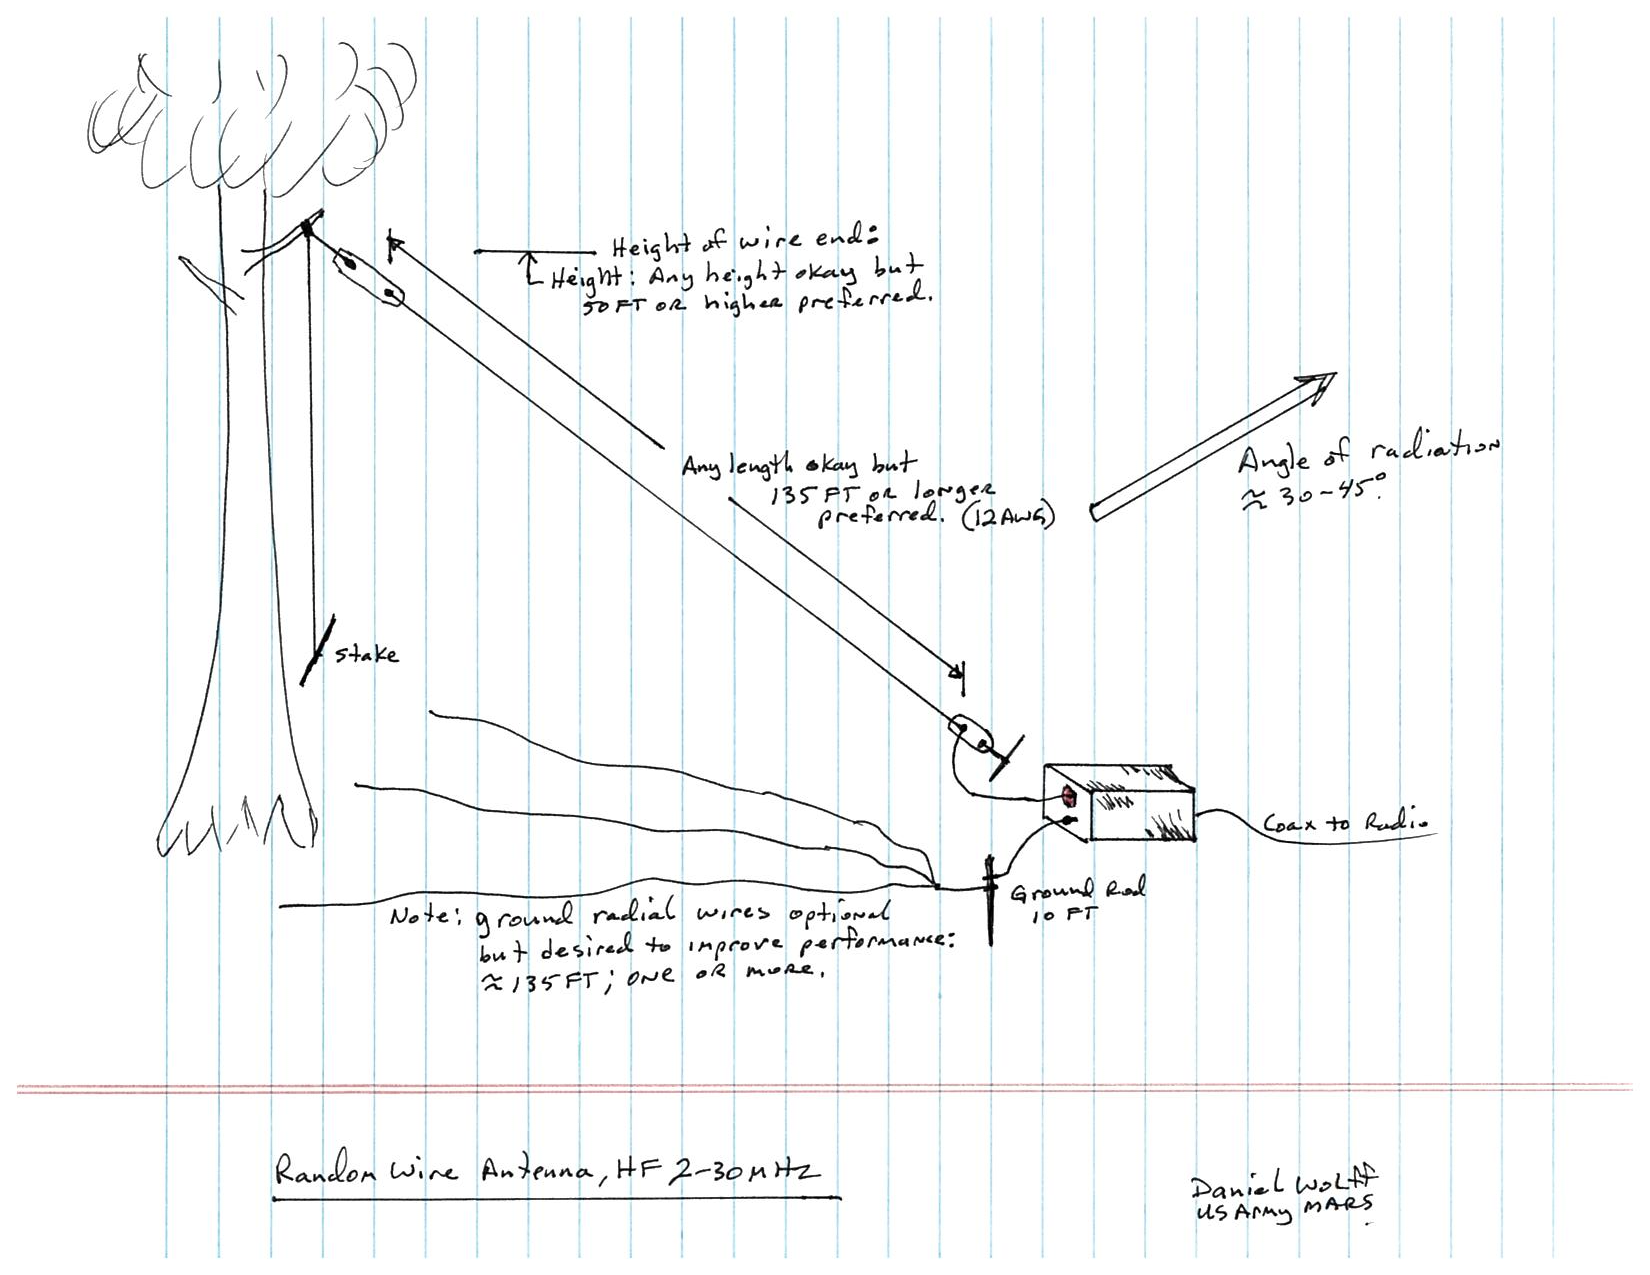 Height of wire end:
Height: Any height okay but
50FT OR higher preferred.
Any length okay but
135 FT OR longer
preferred. (12AWG)
Angle of radiation
≈ 30-45°.
stake
Coax to Radio
Ground Rod
10 FT
Note: ground radial wires optional
but desired to improve performance:
≈135FT; ONE OR more.
Random Wire Antenna, HF 2-30MHz
Daniel Wolff
US Army MARS